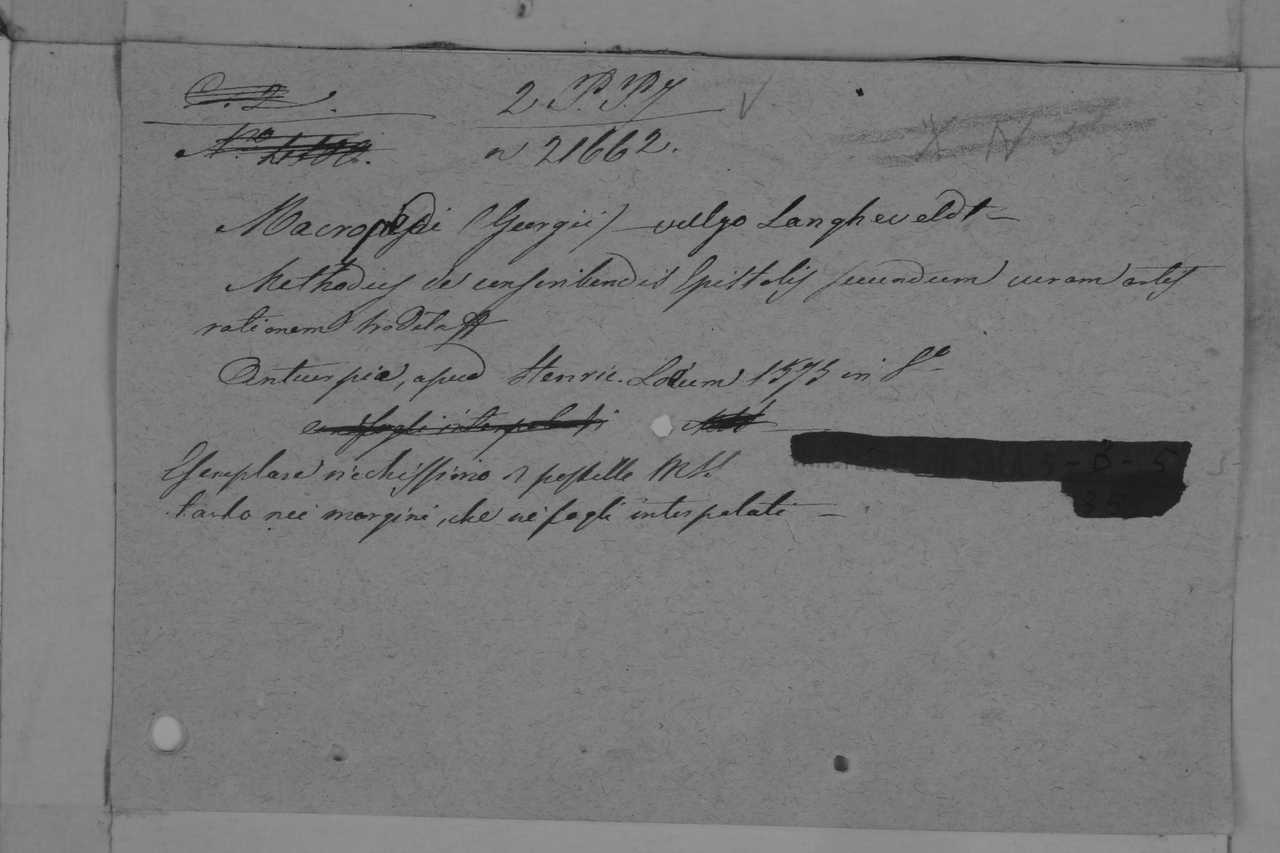 2 P.P.7
n 21662.
Macropedi (Georgii) vulgo Langheveldt
Methodus de conscribendis Epistolis secundum veram artis
rationem tradita
Antuerpiæ, apud Henric. Loëum 1573 in 8º
con fogli interpolati
Esemplare ricchissimo di postille MSS.
tanto nei margini, che ne' fogli interpolati